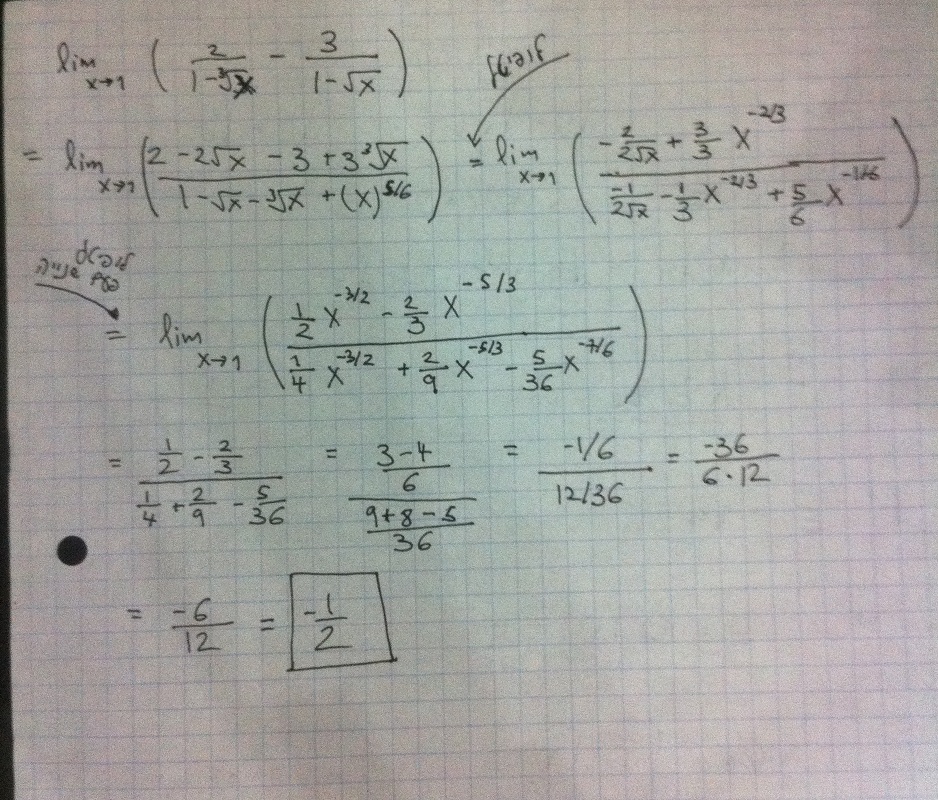 lim x→1 ( 2/(1-∛x) - 3/(1-√x) )
= lim x→1 ( (2 - 2√x - 3 + 3∛x)/(1 - √x - ∛x + (x)^5/6) ) = lim x→1 ( (-2/(2√x) + 3/3 x^-2/3)/(-1/(2√x) - 1/3 x^-2/3 + 5/6 x^-1/6) )
פעם שנייה
= lim x→1 ( (1/2 x^-3/2 - 2/3 x^-5/3)/(1/4 x^-3/2 + 2/9 x^-5/3 - 5/36 x^-7/6) )
= (1/2 - 2/3)/(1/4 + 2/9 - 5/36) = ((3-4)/6)/((9+8-5)/36) = (-1/6)/(12/36) = -36/(6·12)
= -6/12 = -1/2